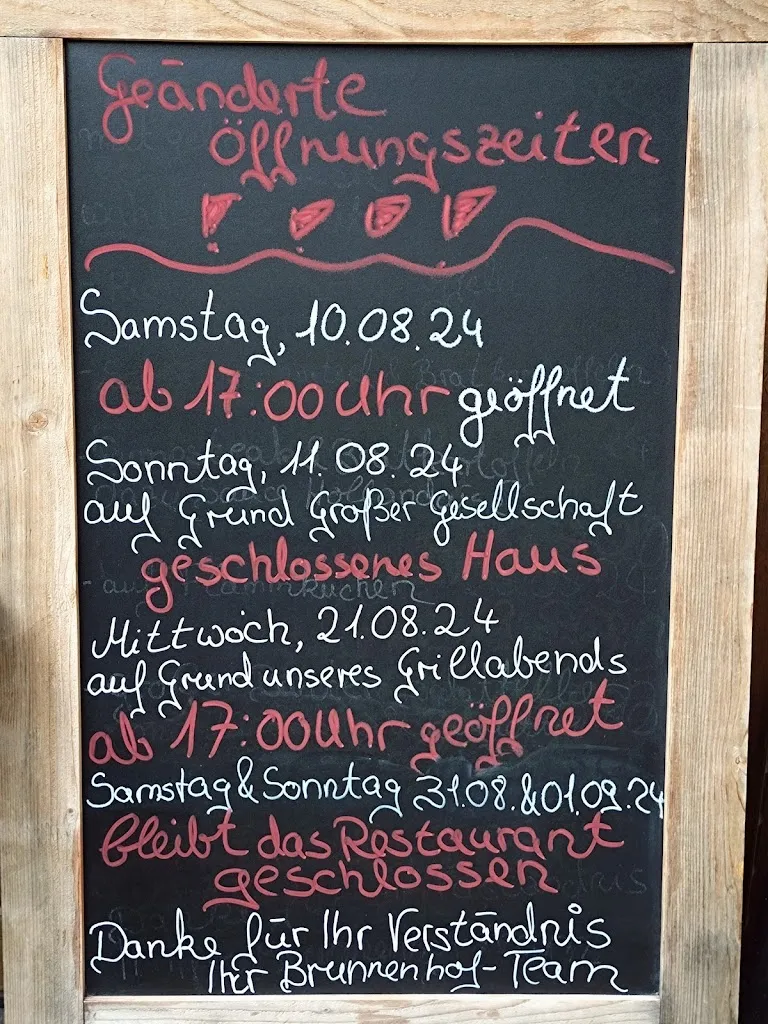 Geänderte
Öffnungszeiten
Samstag, 10.08.24
ab 17:00 Uhr geöffnet
Sonntag, 11.08.24
auf Grund Großer Gesellschaft
geschlossenes Haus
Mittwoch, 21.08.24
auf Grund unseres Grillabends
ab 17:00 Uhr geöffnet
Samstag & Sonntag 31.08. & 01.09.24
bleibt das Restaurant
geschlossen
Danke für Ihr Verständnis
Ihr Brunnenhof-Team